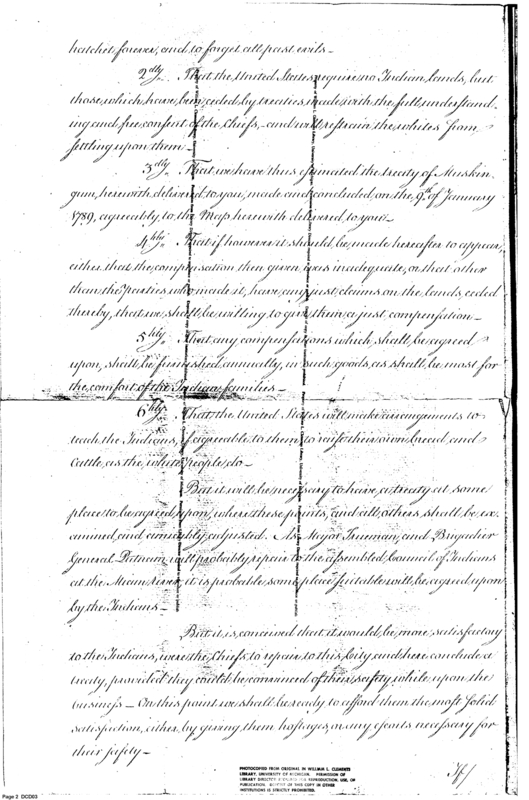 hatchet forever, and to forget all past evils—
2dly That the United States require no Indian lands, but
those which have been ceded by treaties, made with the full understand-
ing and free consent of the Chiefs, and will restrain the whites from
settling upon them—
3dly That we have thus estimated the treaty of Muskin-
gum, herewith delivered to you, made and concluded on the 9th of January
1789, agreeably to the Map herewith delivered to you—
4thly That if however it should be made hereafter to appear,
either that the compensation then given was inadequate, or that other
than the parties who made it, have any just claims on the lands, ceded
thereby, that we shall be willing to give them a just compensation—
5thly That any compensations which shall be agreed
upon, shall be furnished annually, in such goods, as shall be most for
the comfort of the Indian families—
6thly That the United States will make arrangements to
teach the Indians, if agreeable to them to raise their own bread and
Cattle, as the white people do—
But it will be necessary to have a treaty at some
place to be agreed upon, where these points, and all others, shall be ex-
amined and amicably adjusted. As Major Trueman, and Brigadier
General Putnam, will probably repair to the assembled Council of Indians
at the Miami river, it is probable, some place suitable will be agreed upon
by the Indians—
But it is conceived that it would be more satisfactory
to the Indians, were the Chiefs to repair to this City, and here conclude a
treaty, provided they could be convinced of their safety while upon the
business— On this point we shall be ready to afford them the most solid
satisfaction, either by giving them hostages, or any escorts necessary for
their safety—
If/
PHOTOCOPIED FROM ORIGINAL IN WILLIAM L. CLEMENTS
LIBRARY, UNIVERSITY OF MICHIGAN. PERMISSION OF
LIBRARY DIRECTOR REQUIRED FOR REPRODUCTION, USE, OR
PUBLICATION. DEPOSIT OF THIS COPY IN OTHER
INSTITUTIONS IS STRICTLY PROHIBITED.
Page 2 DCD03